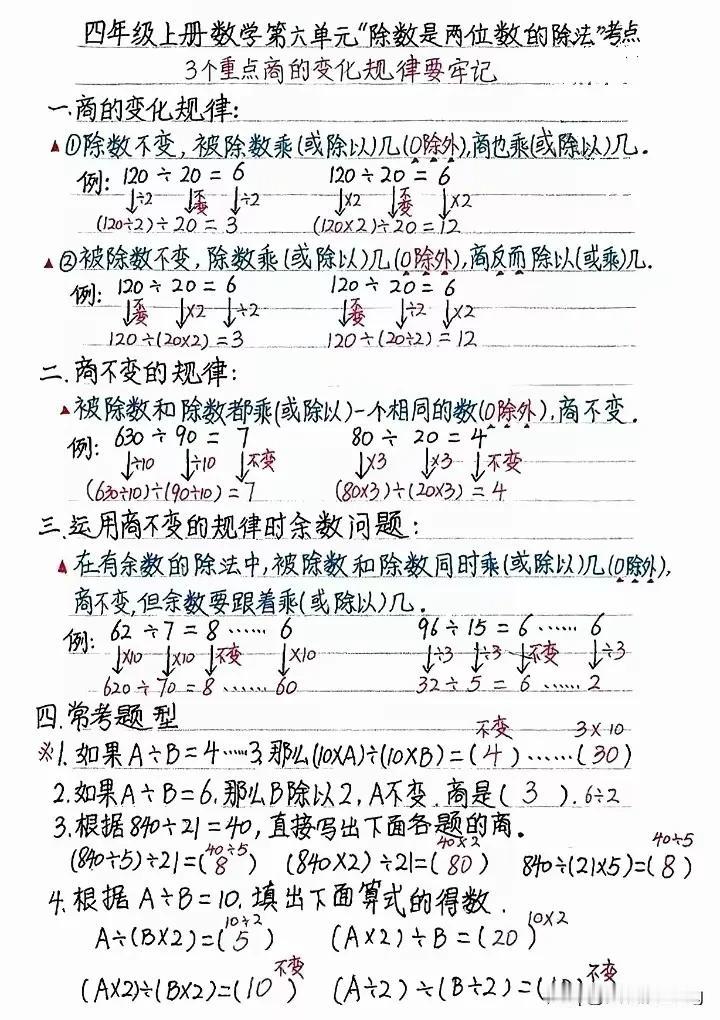 四年级上册数学第六单元“除数是两位数的除法”考点
3个重点商的变化规律要牢记
一.商的变化规律:
▲①除数不变,被除数乘(或除以)几(0除外),商也乘(或除以)几.
例: 120÷20=6 120÷20=6
↓÷2 ↓不变 ↓÷2 ↓×2 ↓不变 ↓×2
(120÷2)÷20=3 (120×2)÷20=12
▲②被除数不变,除数乘(或除以)几(0除外),商反而除以(或乘)几.
例: 120÷20=6 120÷20=6
↓不变 ↓×2 ↓÷2 ↓不变 ↓÷2 ↓×2
120÷(20×2)=3 120÷(20÷2)=12
二.商不变的规律:
▲被除数和除数都乘(或除以)一个相同的数(0除外),商不变.
例: 630÷90=7 80÷20=4
↓÷10 ↓÷10 ↓不变 ↓×3 ↓×3 ↓不变
(630÷10)÷(90÷10)=7 (80×3)÷(20×3)=4
三.运用商不变的规律时余数问题:
▲在有余数的除法中,被除数和除数同时乘(或除以)几(0除外),
商不变,但余数要跟着乘(或除以)几.
例: 62÷7=8……6 96÷15=6……6
↓×10 ↓×10 ↓不变 ↓×10 ↓÷3 ↓÷3 ↓不变 ↓÷3
620÷70=8……60 32÷5=6……2
四.常考题型
不变 3×10
※1.如果A÷B=4……3,那么(10×A)÷(10×B)=(4)……(30)
2.如果A÷B=6,那么B除以2,A不变.商是(3).6÷2
3.根据840÷21=40,直接写出下面各题的商。
40÷5 40×2 40÷5
(840÷5)÷21=(8) (840×2)÷21=(80) 840÷(21×5)=(8)
4.根据A÷B=10.填出下面算式的得数.
10÷2 10×2
A÷(B×2)=(5) (A×2)÷B=(20)
不变 不变
(A×2)÷(B×2)=(10) (A÷2)÷(B÷2)=(10)